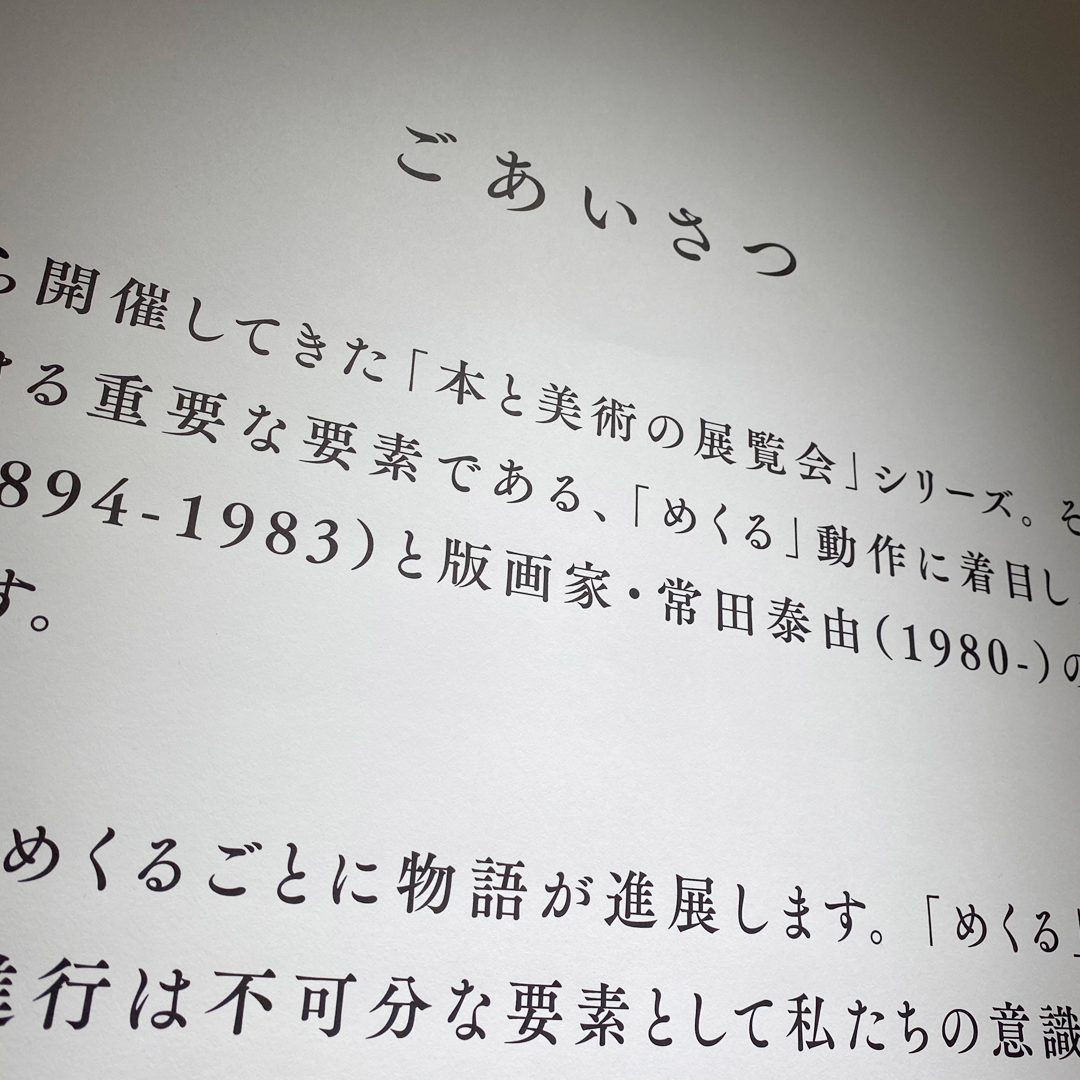 ごあいさつ
ら開催してきた「本と美術の展覧会」シリーズ。そ
ける重要な要素である、「めくる」動作に着目し
894-1983)と版画家・常田泰由(1980-)の
す。
めくるごとに物語が進展します。「めくる」
進行は不可分な要素として私たちの意識